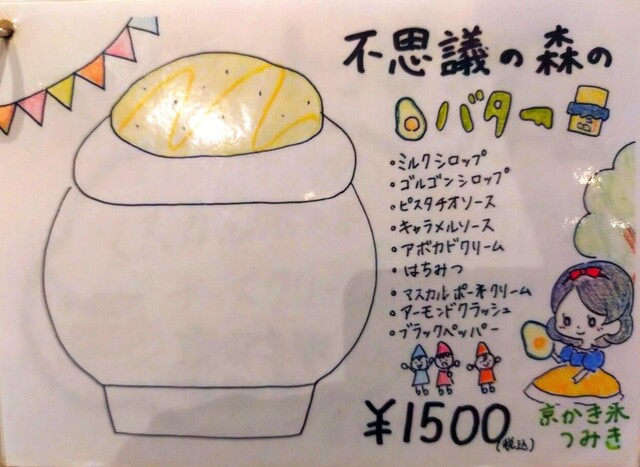 不思議の森の
バター
・ミルクシロップ
・ゴルゴンシロップ
・ピスタチオソース
・キャラメルソース
・アボカドクリーム
・はちみつ
・マスカルポーネクリーム
・アーモンドクラッシュ
・ブラックペッパー
¥1500(税込)
京かき氷
つみき